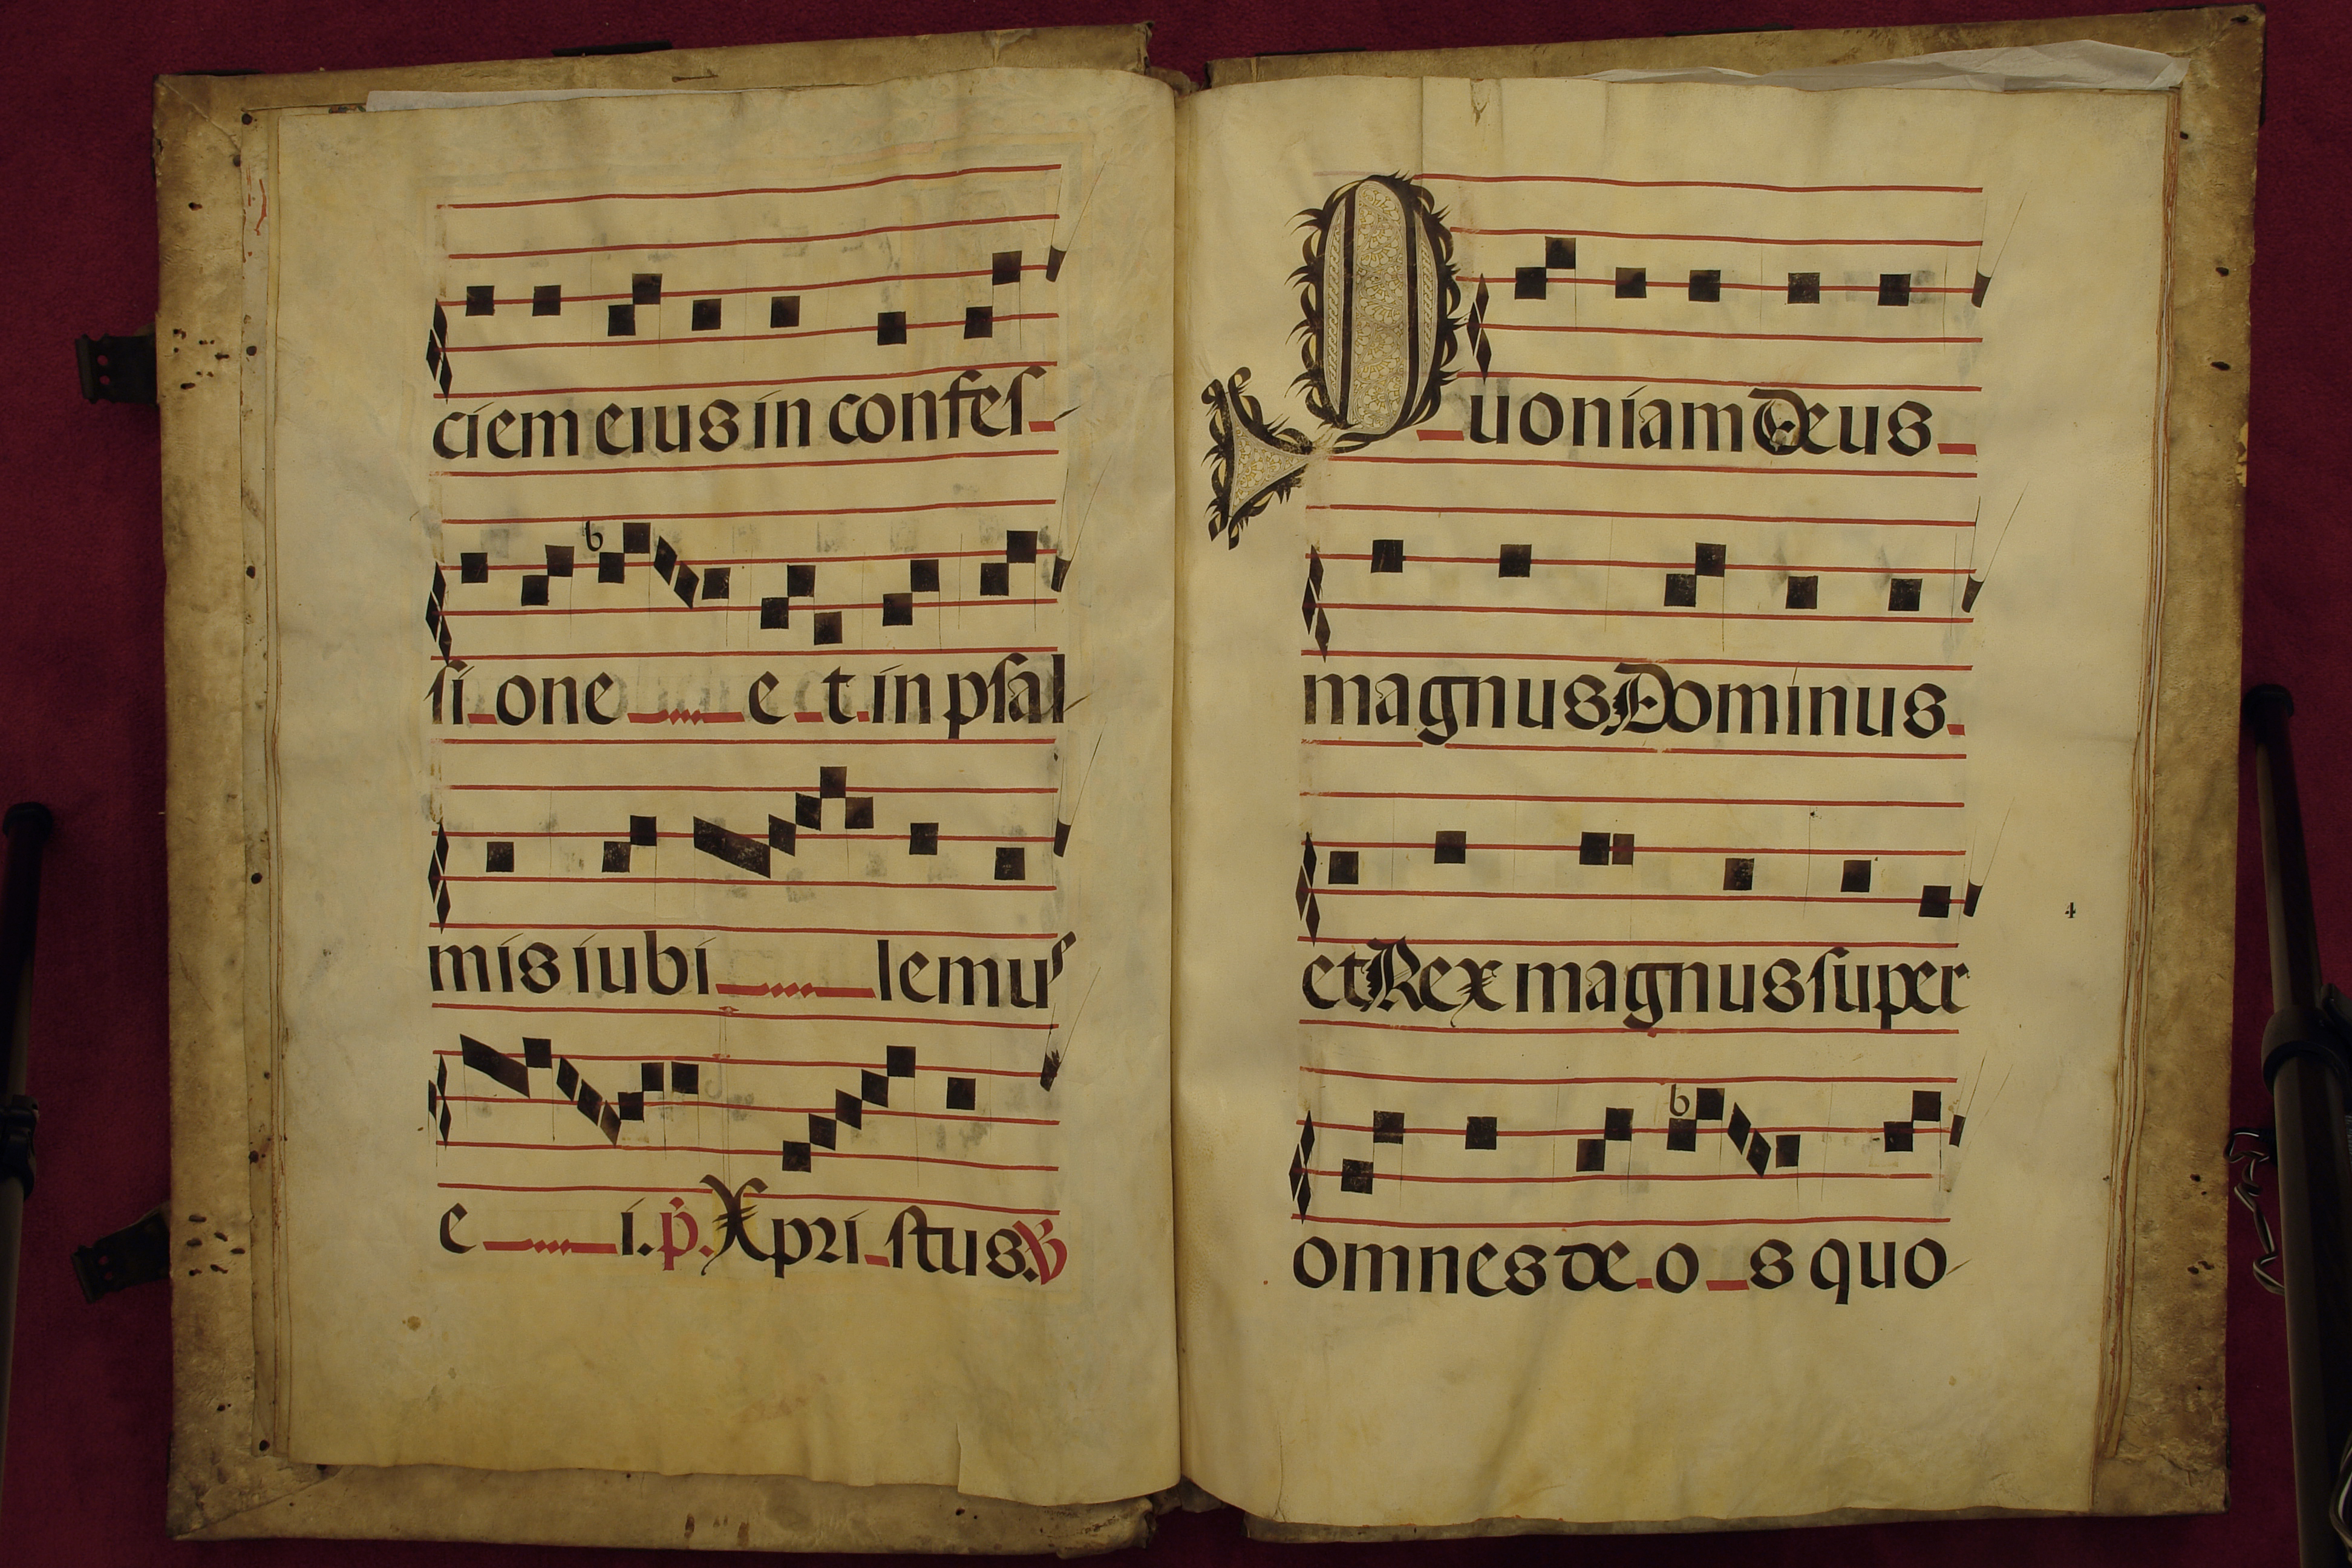 ciem eius in confeſ
ſi one e t in pſal
mis iubi lemus
e i. p. Xpri ſtus. V
Quoniam Deus
magnus Dominus
et Rex magnus ſuper
4
omnes de o s quo